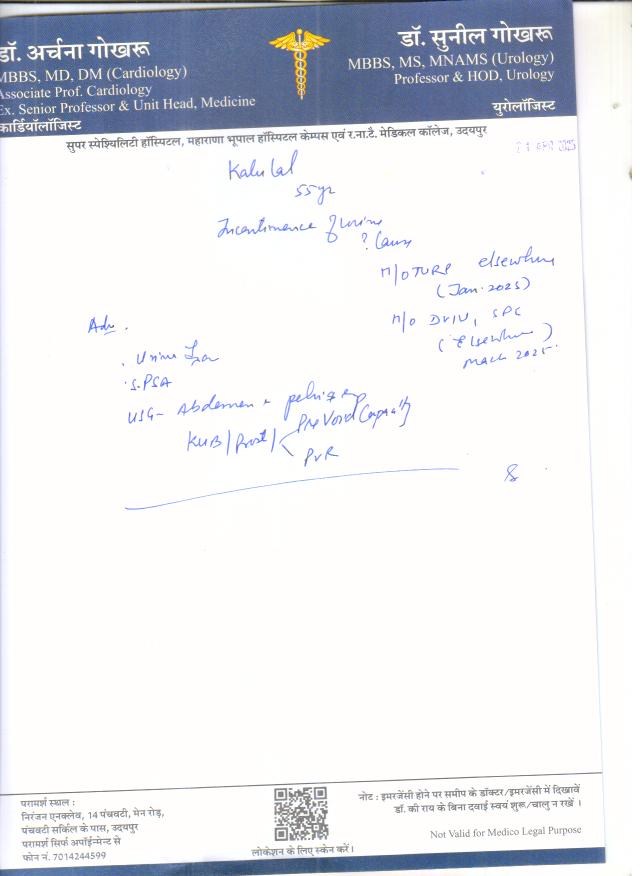 डॉ. अर्चना गोखरू
MBBS, MD, DM (Cardiology)
Associate Prof. Cardiology
Ex. Senior Professor & Unit Head, Medicine
कार्डियॉलॉजिस्ट
डॉ. सुनील गोखरू
MBBS, MS, MNAMS (Urology)
Professor & HOD, Urology
युरोलॉजिस्ट
सुपर स्पेश्यिलिटी हॉस्पिटल, महाराणा भूपाल हॉस्पिटल केम्पस एवं र.ना.टै. मेडिकल कॉलेज, उदयपुर
21 APR 2025
Kalu Lal
55 yr
Incontinence of urine
? Cause
H/O TURP elsewhere
(Jan. 2025)
H/O DVIU, SPC
(Elsewhere)
March 2025.
Adv.
. Urine
. S. PSA
USG - Abdomen + pelvis
KUB / Prost /
Pre Void Capacity
PVR
परामर्श स्थल :
निरंजन एनक्लेव, 14 पंचवटी, मेन रोड़,
पंचवटी सर्किल के पास, उदयपुर
परामर्श सिर्फ अपॉईन्मेन्ट से
फोन नं. 7014244599
लोकेशन के लिए स्केन करें।
नोट : इमरजेंसी होने पर समीप के डॉक्टर/इमरजेंसी में दिखावें
डॉ. की राय के बिना दवाई स्वयं शुरू/चालु न रखें ।
Not Valid for Medico Legal Purpose